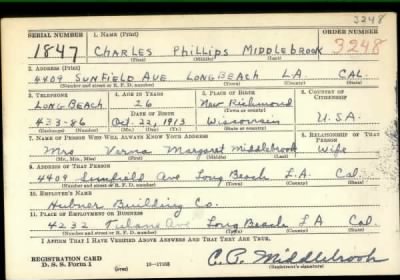 3248
SERIAL NUMBER 1. NAME (Print) ORDER NUMBER
1847 CHARLES Phillips MIDDLEBROOK 3248
(First) (Middle) (Last)
2. ADDRESS (Print)
4409 SUNFIELD AVE LONG BEACH L.A. CAL.
(Number and street or R. F. D. number) (Town) (County) (State)
3. TELEPHONE 4. AGE IN YEARS 5. PLACE OF BIRTH 6. COUNTRY OF CITIZENSHIP
LONG BEACH 26 New Richmond
DATE OF BIRTH (Town or county)
433-86 Oct. 22, 1913 Wisconsin U.S.A.
(Exchange) (Number) (Mo.) (Day) (Yr.) (State or country)
7. NAME OF PERSON WHO WILL ALWAYS KNOW YOUR ADDRESS 8. RELATIONSHIP OF THAT PERSON
Mrs Verna Margaret Middlebrook Wife
(Mr., Mrs., Miss) (First) (Middle) (Last)
9. ADDRESS OF THAT PERSON
4409 Sunfield Ave Long Beach L.A. Cal.
(Number and street or R. F. D. number) (Town) (County) (State)
10. EMPLOYER'S NAME
Hubner Building Co.
11. PLACE OF EMPLOYMENT OR BUSINESS
4232 Ave Long Beach L A Cal.
(Number and street or R. F. D. number) (Town) (County) (State)
I AFFIRM THAT I HAVE VERIFIED ABOVE ANSWERS AND THAT THEY ARE TRUE.
REGISTRATION CARD
D. S. S. Form 1 (over) C. P. Middlebrook
(Registrant's signature)